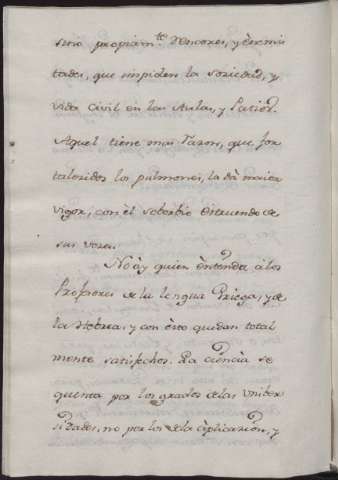 sino propiam.te rencores, y enemis
tades, que impiden la soriedad, y
vida Civil en las Aulas, y Patios.
Aquel tiene mas razon, que for
taleridos los pulmones, la dà maior
vigor, con èl soberbio estruendo de
sus voces.
No ày quien èntienda à los
Profesores de la lengua Griega, y de
la Hebrea, y con èsto quedan total
mente satisfechos. La ciencia se
quenta por los grados de las Univer
sidades, no por los de la àplicazion, y